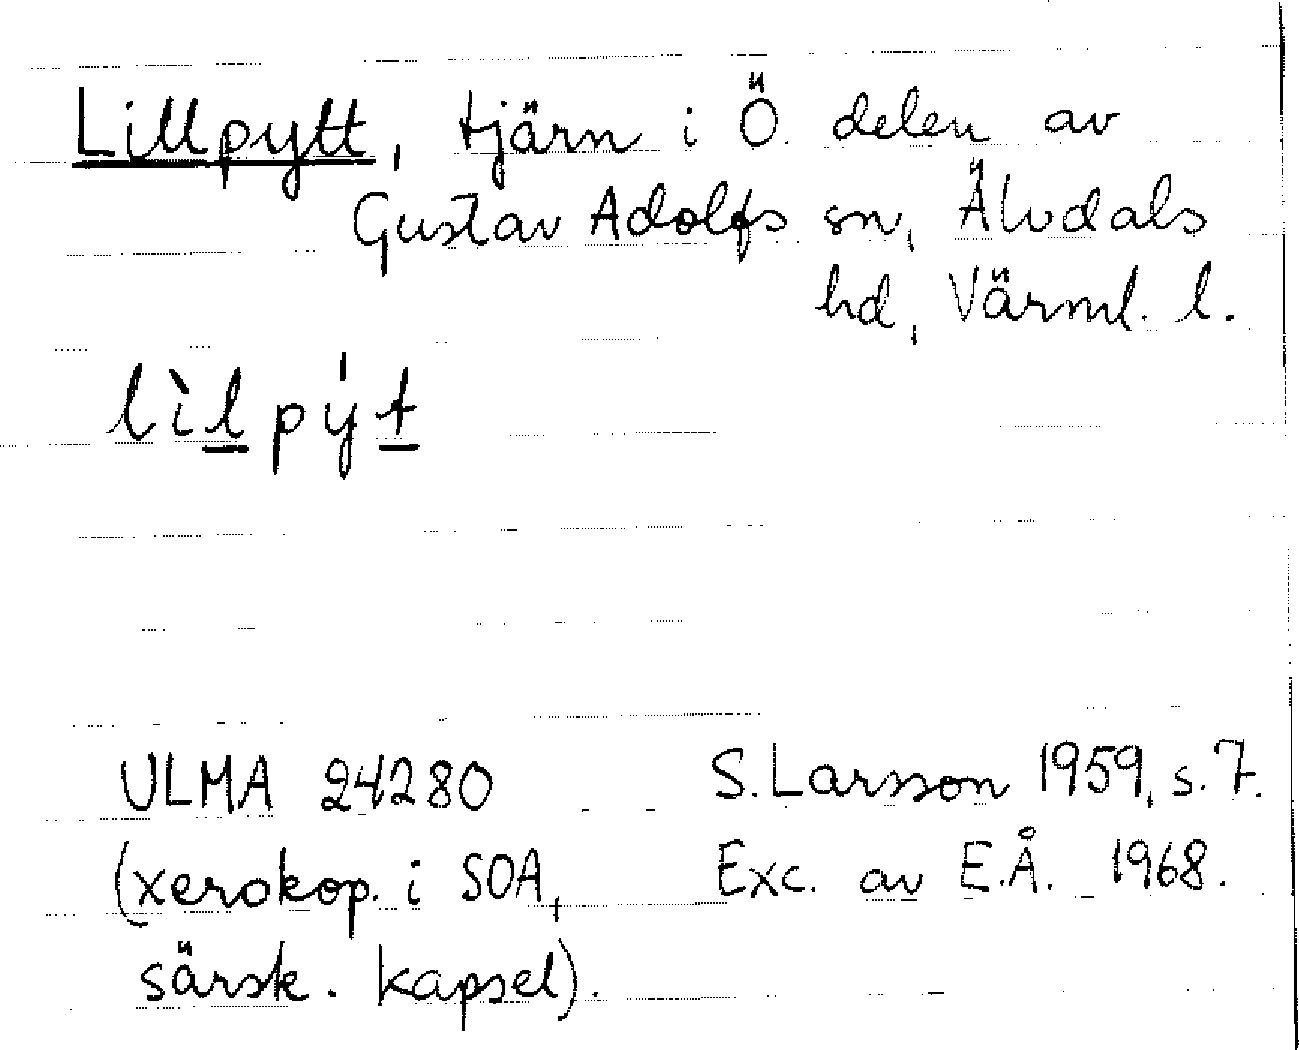 Lillpytt, tjärn i Ö. delen av
Gustav Adolfs sn, Älvdals
hd, Värml. l.
lìlpýt
ULMA 24280 S. Larsson 1959, s. 7.
(xerokop. i SOA, Exc. av E.Å. 1968.
särsk. kapsel).